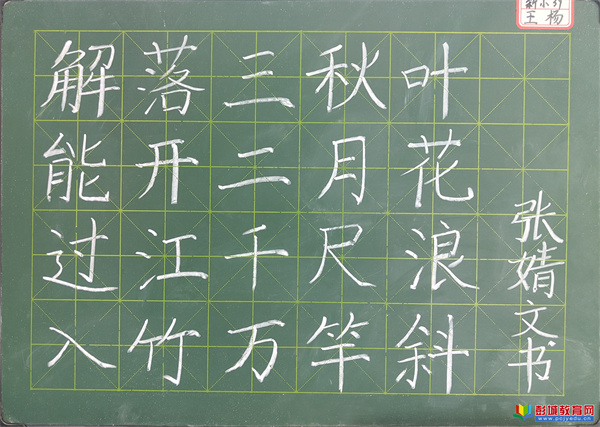 解落三秋叶
能开二月花
过江千尺浪
入竹万竿斜
张婧文书
王杨
彭城教育网
www.pcjyedu.cn